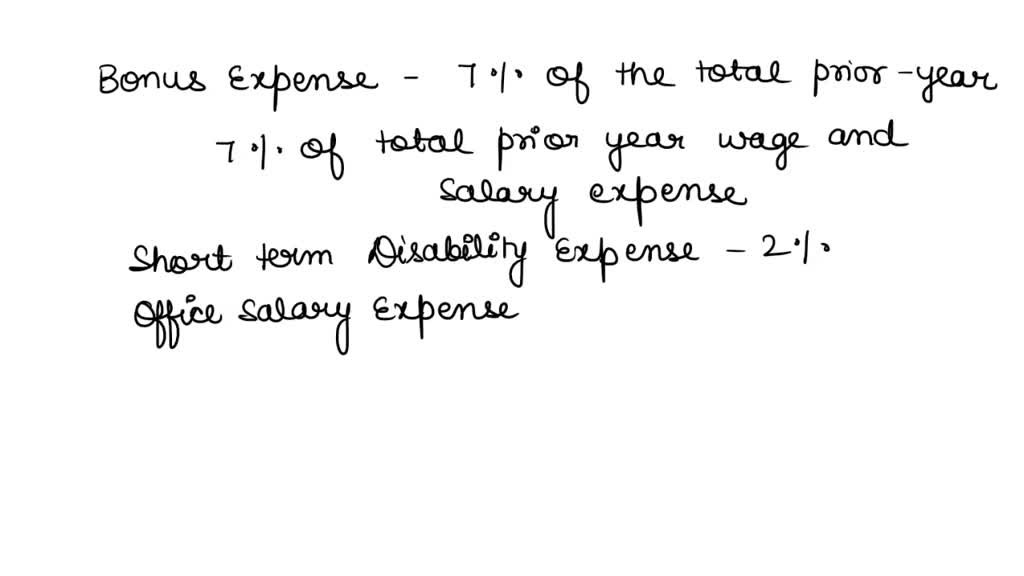 Bonus Expense - 7% of the total prior-year
7% of total prior year wage and
salary expense
Short term Disability Expense - 2%
Office Salary Expense